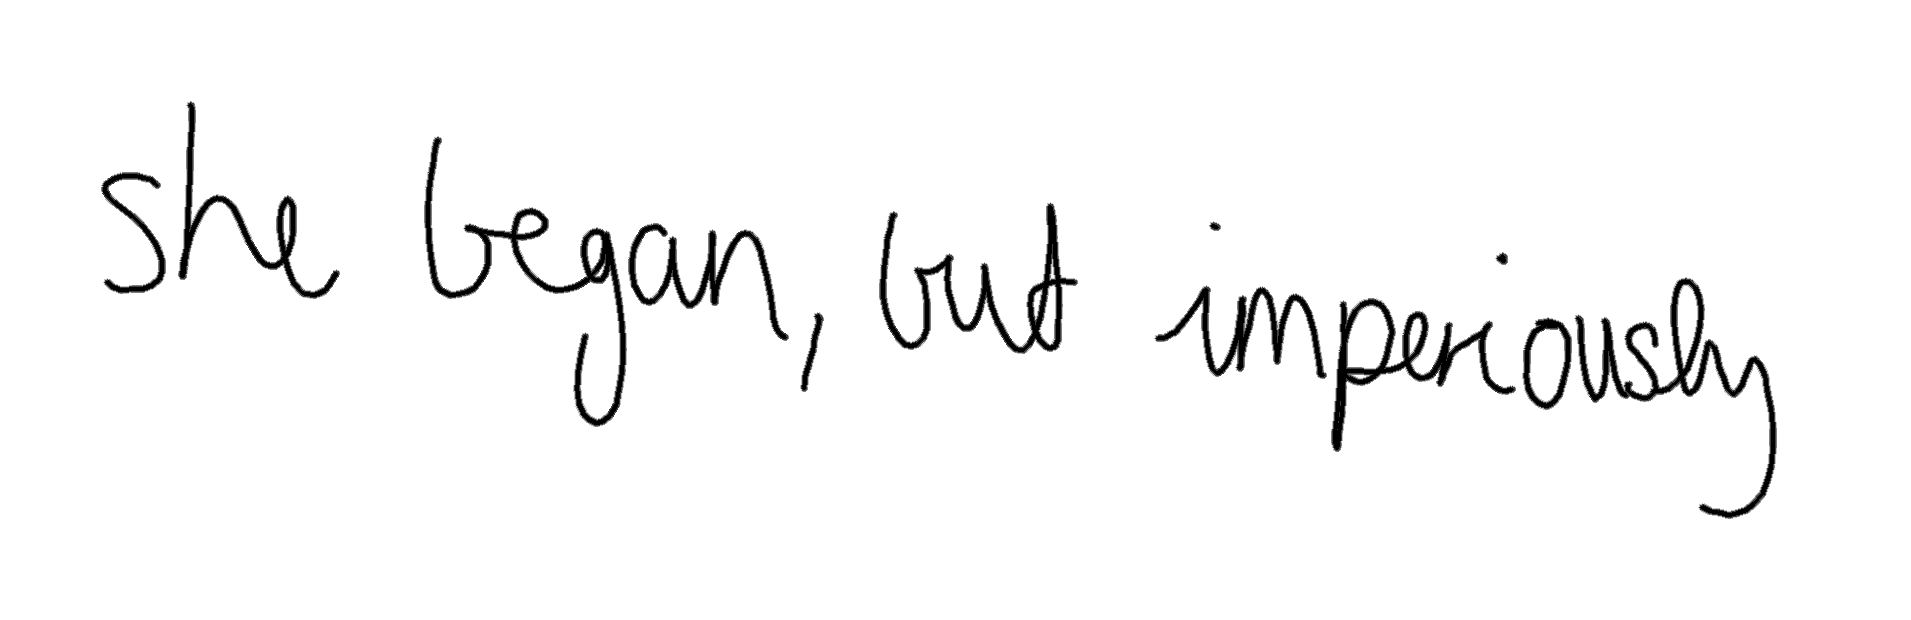 she began, but imperiously